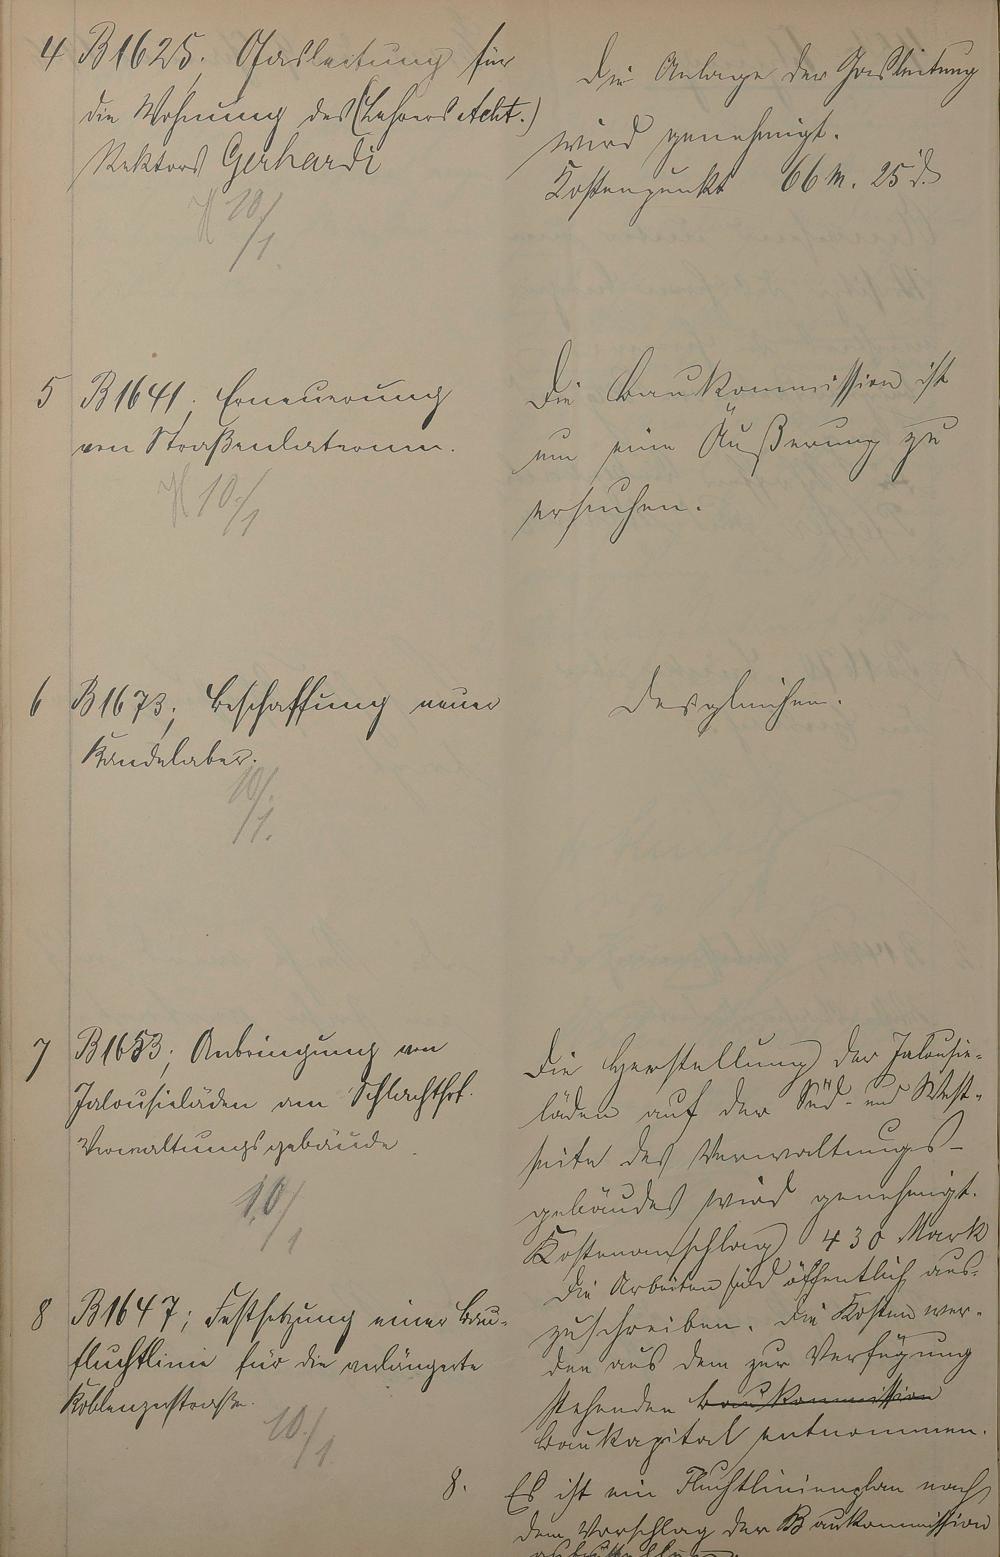 4 B1625; Gasleitung für
die Wohnung des (Lehrers Acht.)
Rektors Gerhardi
10/1.
Die Anlage der Gasleitung
wird genehmigt.
Kostenpunkt 66 M. 25 d.
5 B1641; Erneuerung
von Straßenlaternen.
10./1
Die Baukommission ist
um eine Äußerung zu
ersuchen.
6 B1673; Beschaffung neuer
Kandelaber.
10/1.
Desgleichen.
7 B1653; Anbringung von
Jalousieläden am Schlachthof-
Verwaltungsgebäude.
10/1
Die Herstellung der Jalousie-
läden auf der Süd- und West-
seite des Verwaltungs-
gebäudes wird genehmigt.
Kostenanschlag 430 Mark
Die Arbeiten sind öffentlich aus-
zuschreiben. Die Kosten wer-
den aus dem zur Verfügung
stehenden Baukommission
Baukapital entnommen.
8 B1647; Festsetzung einer Bau-
fluchtlinie für die verlängerte
Koblenzerstraße.
10./1
8. Es ist ein Fluchtlinienplan nach
dem Vorschlag der Baukommission